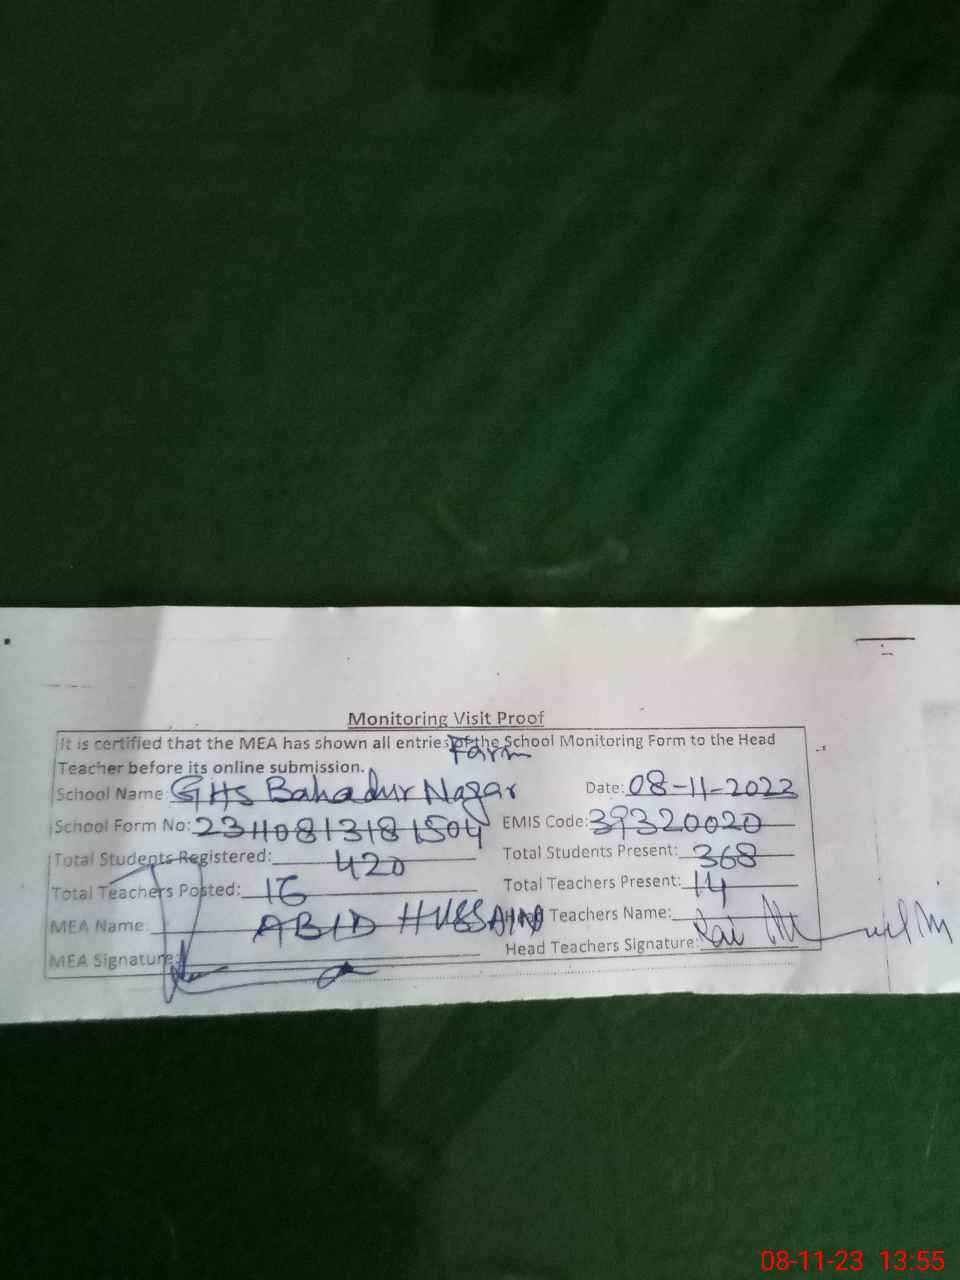 Monitoring Visit Proof
It is certified that the MEA has shown all entries of the School Monitoring Form to the Head
Farm
Teacher before its online submission.
School Name: GHS Bahadur Nagar Date: 08-11-2023
School Form No: 23110813181504 EMIS Code: 39320020
Total Students Registered: 420 Total Students Present: 368
Total Teachers Posted: 16 Total Teachers Present: 14
MEA Name: ABID HUSSAIN Teachers Name:
MEA Signature: Head Teachers Signature: Rai
08-11-23 13:55